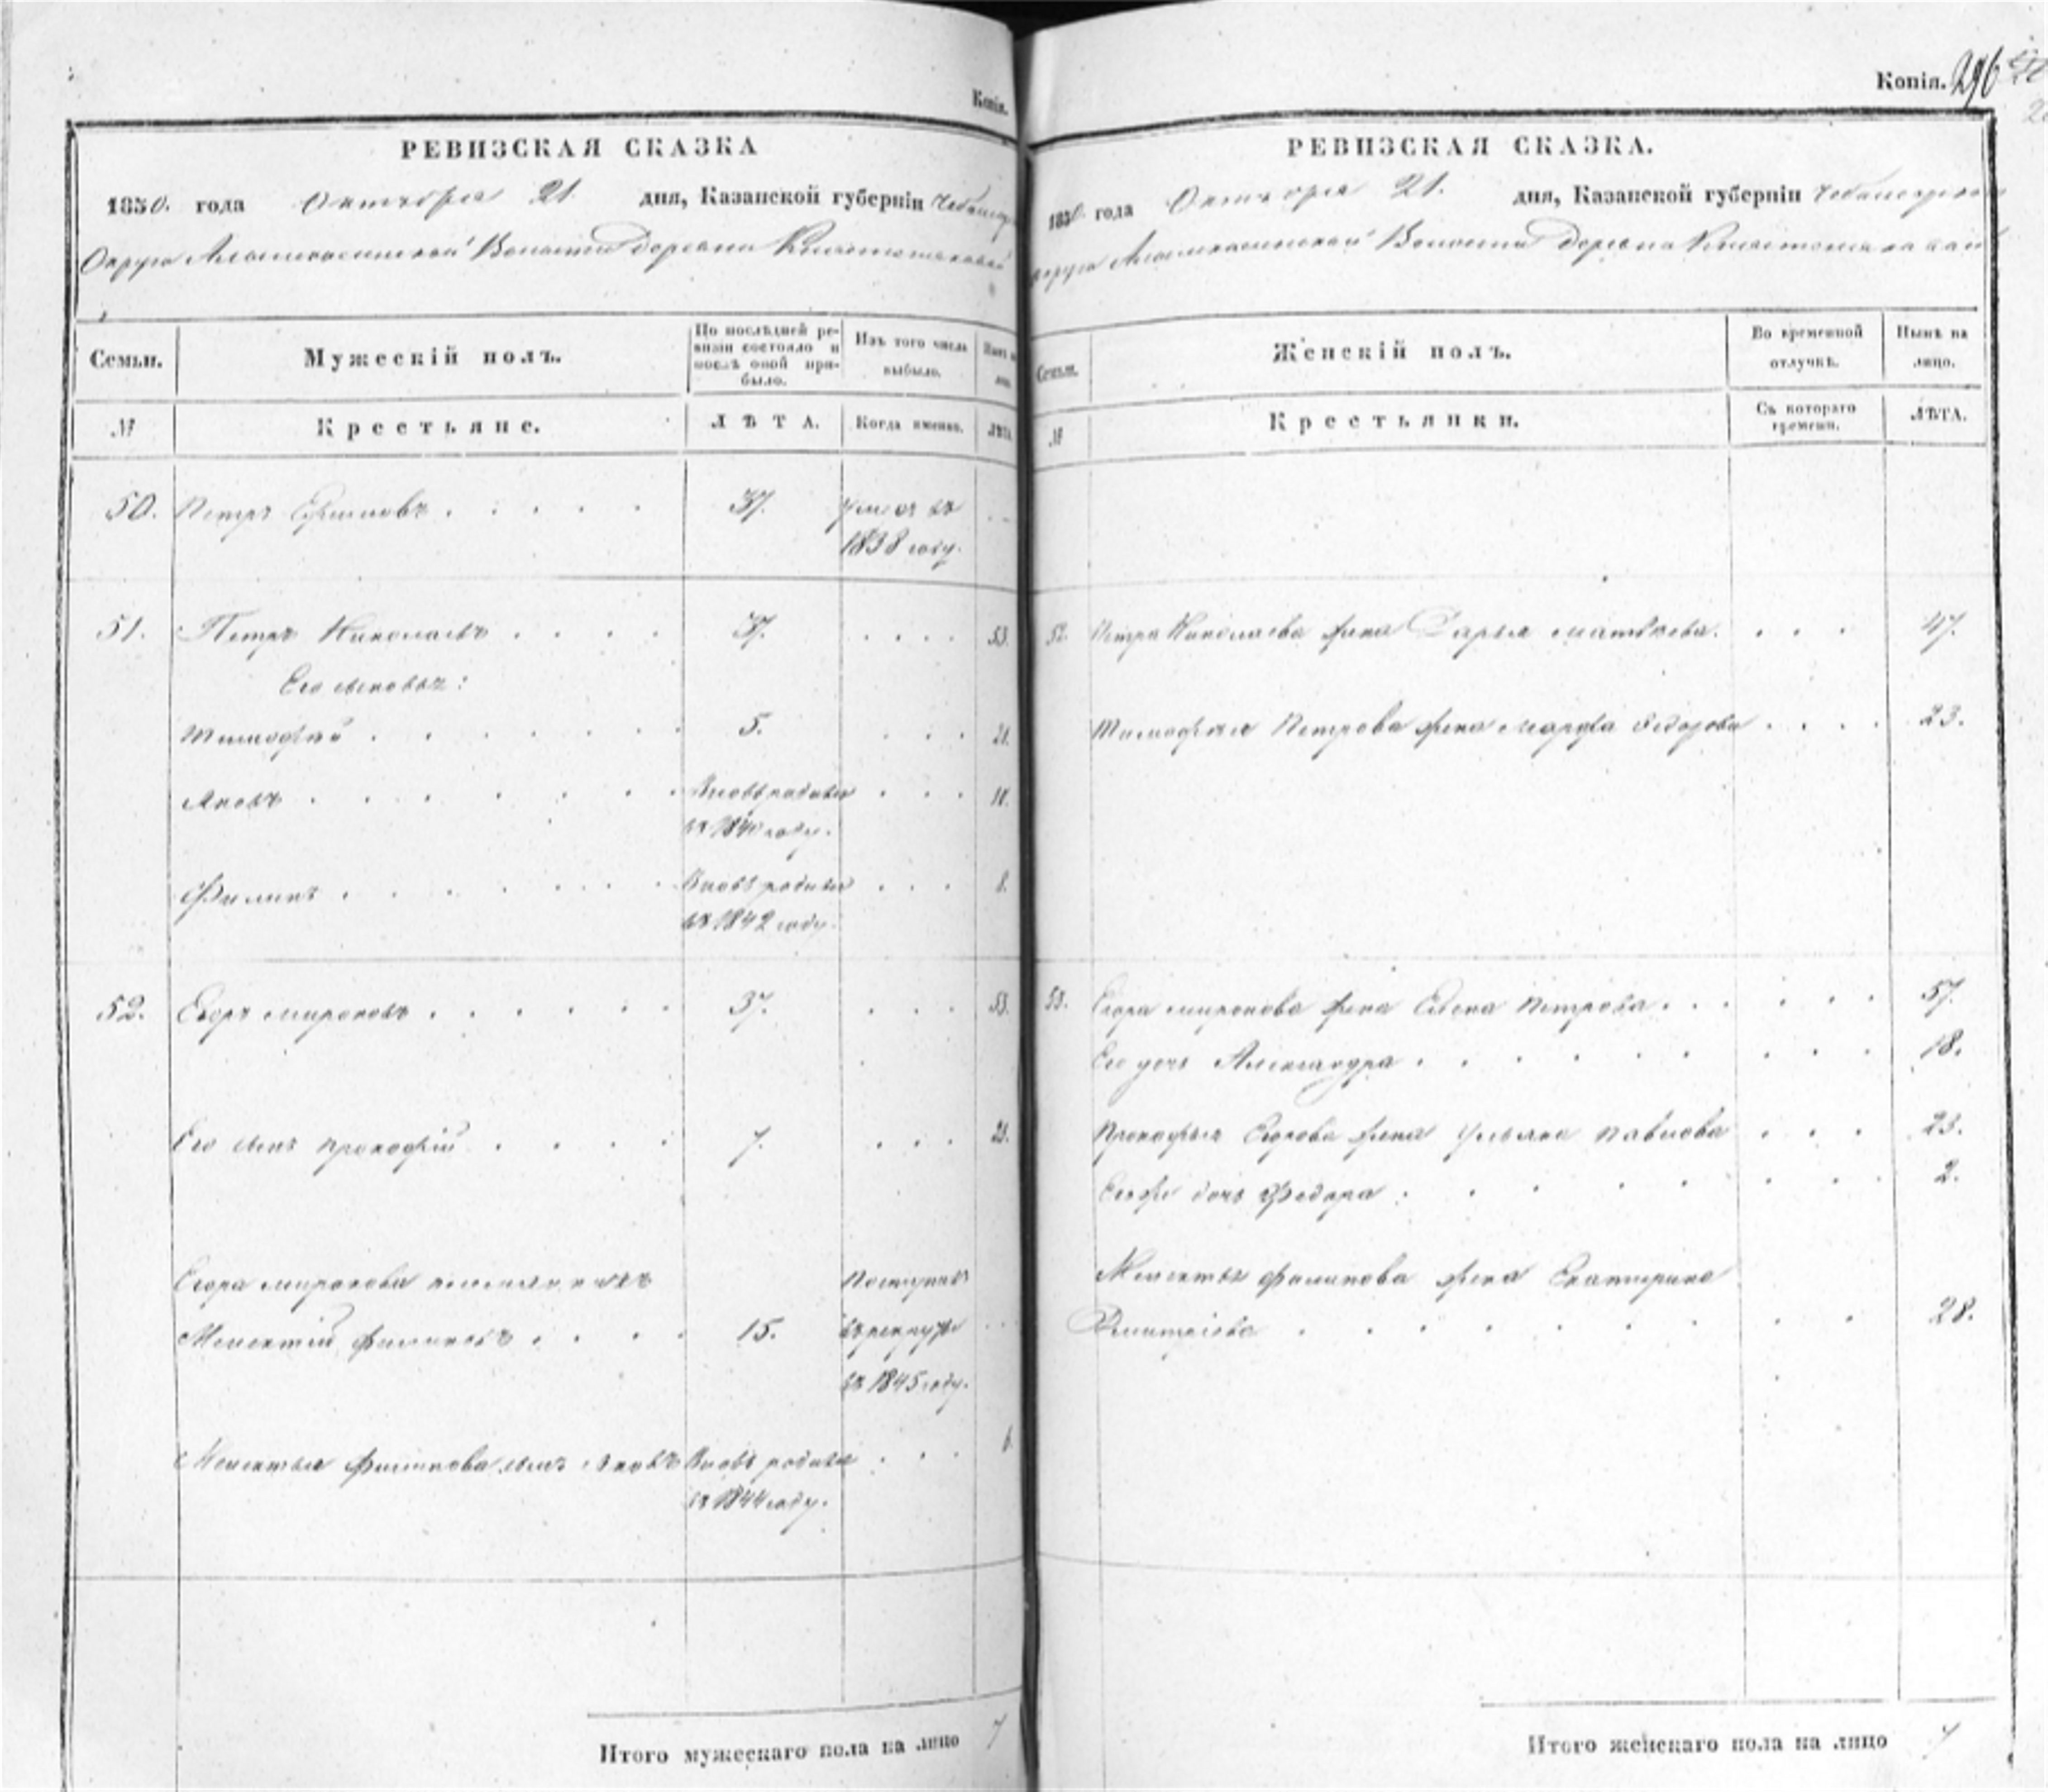 Копія.
РЕВИЗСКАЯ СКАЗКА
1850. года Октября 21. дня, Казанской губерніи
Округа Волости деревни
Семьи.
Мужескій полъ.
По послѣдней ре-
визіи состояло и
послѣ оной при-
было.
Изъ того числа
выбыло.
Нынѣ на
лицо.
№
Крестьяне.
ЛѢТА.
Когда именно.
ЛѢТА.
50. Петръ Ефимовъ . . . . . 37. Умеръ въ
1838 году.
51. Петръ Николаевъ . . . . 37. . . . . 53.
Его сыновья:
Тимофей . . . . . . . 5. . . . 21.
Яковъ . . . . . . . Вновь родился . . . 10.
въ 1840 году.
Филипъ . . . . . . . Вновь родился . . . 8.
въ 1842 году.
52. Егоръ Мироновъ . . . . . . 37. . . . 53.
Его сынъ Прокофій . . . . 7. . . . 23.
Егора Миронова племянникъ Поступилъ
Мелентій Филиповъ . . . . 15. въ рекруты . . .
въ 1845 году.
Мелентья Филипова сынъ Яковъ Вновь родился . . . 6.
въ 1844 году.
Итого мужескаго пола на лицо 7
Копія. 296
РЕВИЗСКАЯ СКАЗКА.
1850 года Октября 21. дня, Казанской губерніи Чебоксарскаго
округа Волости деревни
Семьи.
Женскій полъ.
Во временной
отлучкѣ.
Нынѣ на
лицо.
№
Крестьянки.
Съ котораго
времени.
ЛѢТА.
52. Петра Николаева жена Дарья Матвѣева. . . . 47.
Тимофея Петрова жена Марфа Федорова . . . . 23.
53. Егора Миронова жена Елена Петрова . . . . . . 57.
Его дочь Александра . . . . . . . . . 18.
Прокофья Егорова жена Ульяна Павлова . . . 23.
Его же дочь Федора . . . . . . . . 2.
Мелентья Филипова жена Екатерина
Дмитріева . . . . . . . . . 28.
Итого женскаго пола на лицо 7